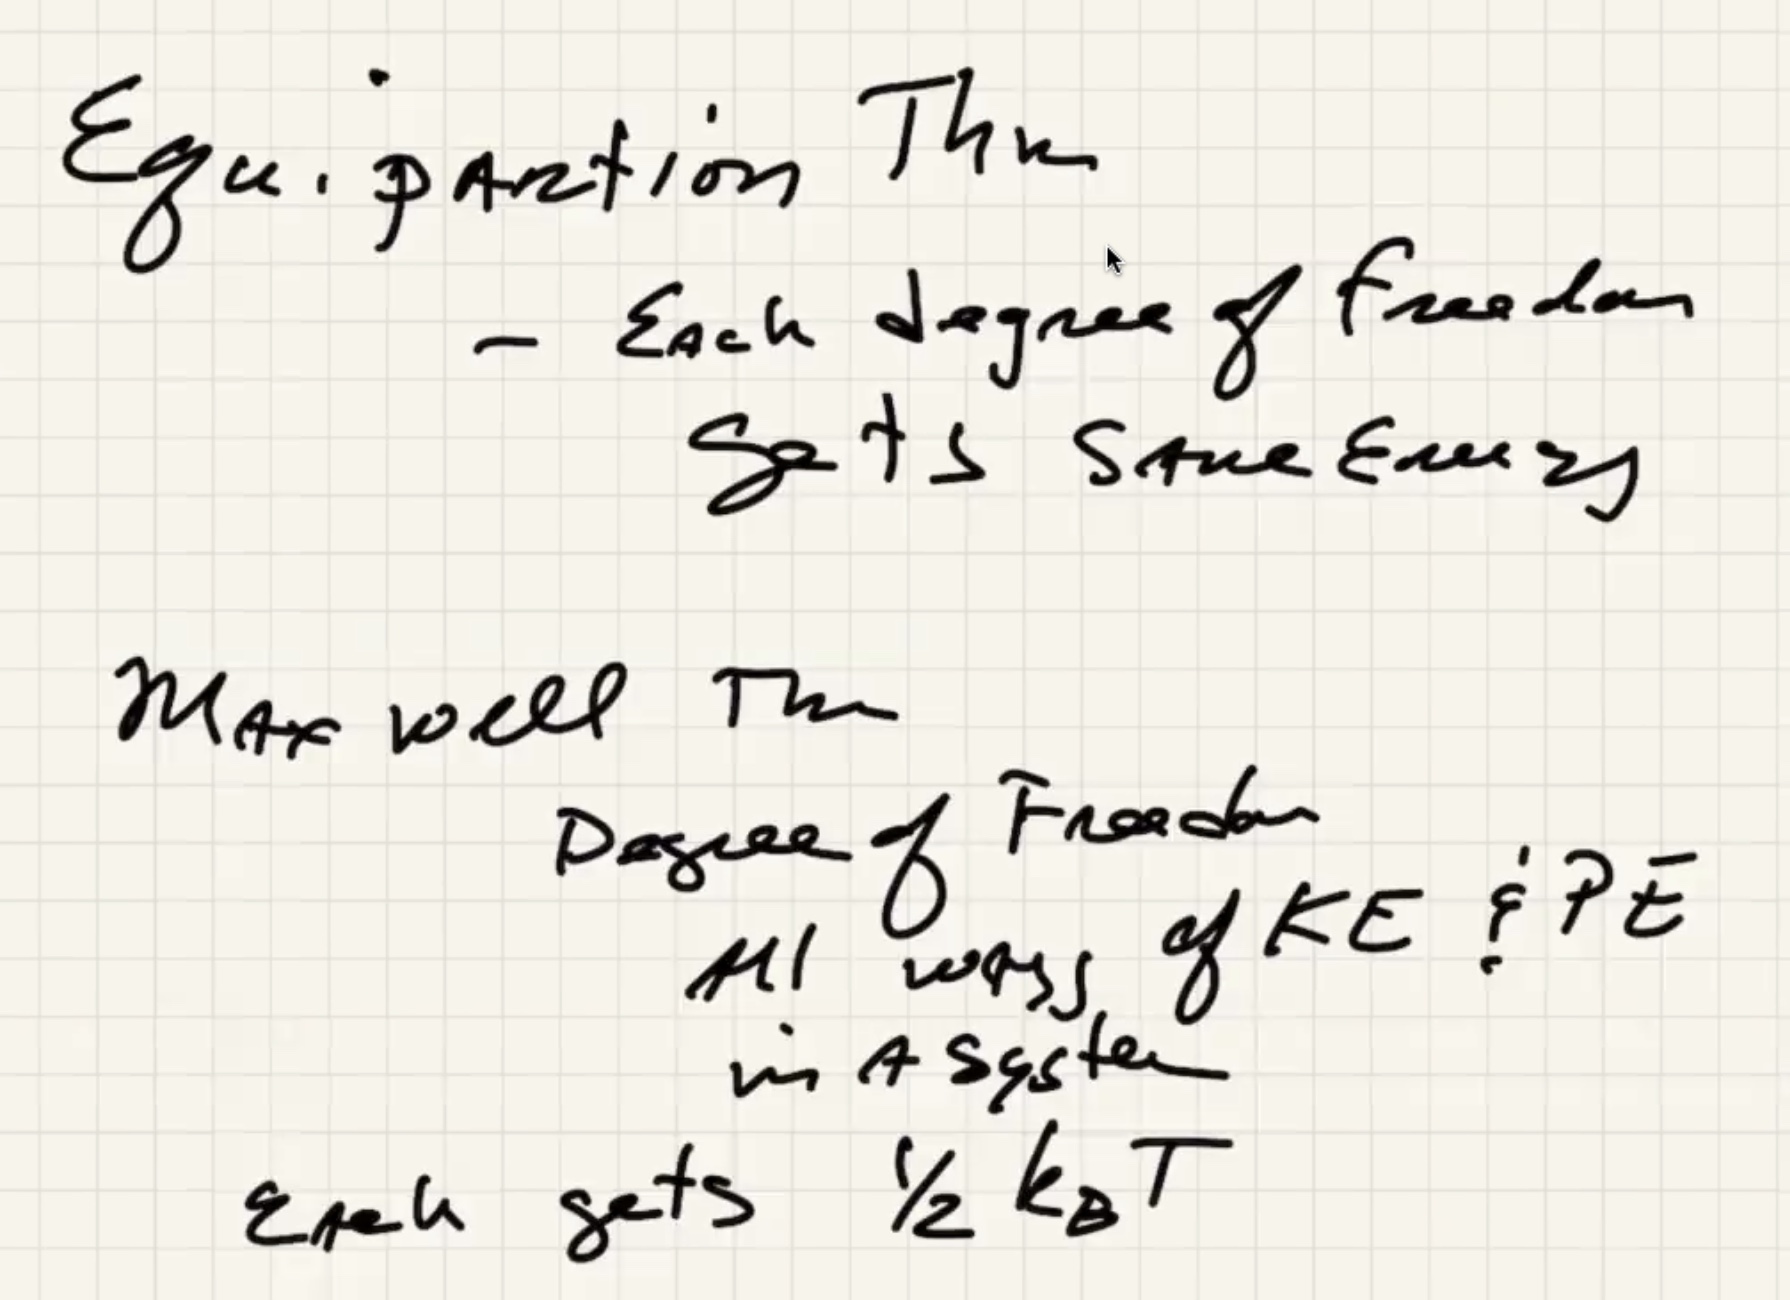 Equipartion Thm
- Each degree of freedom
gets same Energy
Maxwell Thm
Degree of Freedom
All ways of KE & PE
in a system
Each gets 1/2 k_B T